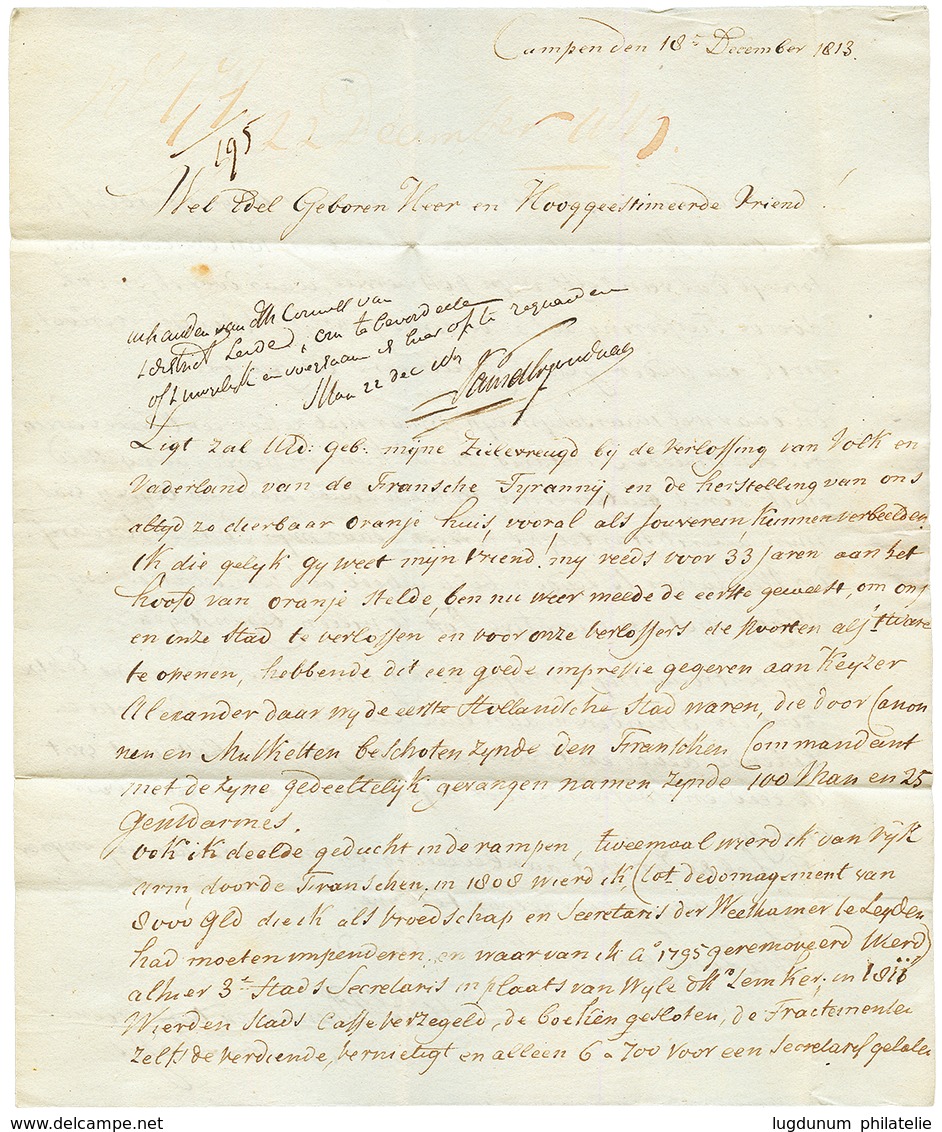 Campen den 18.e December 1813.
22 December 1813.
195
Wel Edel Geboren Heer en Hooggeestimeerde Vriend!
in handen van dHr Commiss van
t district Leiden, om te bevorderen
hier op te
Haa 22 dec 1813
Ligt zal UEd: Geb: mijne Zielevreugd bij de verlossing van Volk en
Vaderland van de Fransche Tyrannij, en de herstelling van ons
altyd zo dierbaar oranje huis, vooral als souverein, kunnen verbeelden,
ik die gelyk gy weet mijn vriend! my reeds voor 33 Jaren aan het
hoofd van oranje stelde, ben nu weer meede de eerste geweest, om ons
en onze stad te verlossen en voor onze verlossers de Poorten als 't ware
te openen, hebbende dit een goede impressie gegeven aan Keyzer
Alexander daar wy de eerste Hollandsche stad waren, die door Canon
nen en Musketten beschoten zynde den Franschen Commandant
met de zyne gedeeltelijk gevangen namen zynde 100 Man en 25
Gensdarmes.
ook ik deelde geducht in de rampen, tweemaal wierd ik van ryk
arm, door de Franschen. in 1808 wierd ik (tot dedomagement van
8000 Gld die ik als vroedschap en Secretaris der Weeskamer te Leyden
had moeten impenderen en waar van ik Ao 1795 geremoveerd wierd)
alhier 3.e Stads Secretaris in plaats van Wyle dHr Lemker; in 1811
Wierden Stads Casse verzegeld, de boeken gesloten, de Tractementen
zelfs de verdiende, vernietigt en alleen 6 a 700 voor een Secretaris gelaten
lugdunum philatelie
www.delcampe.net